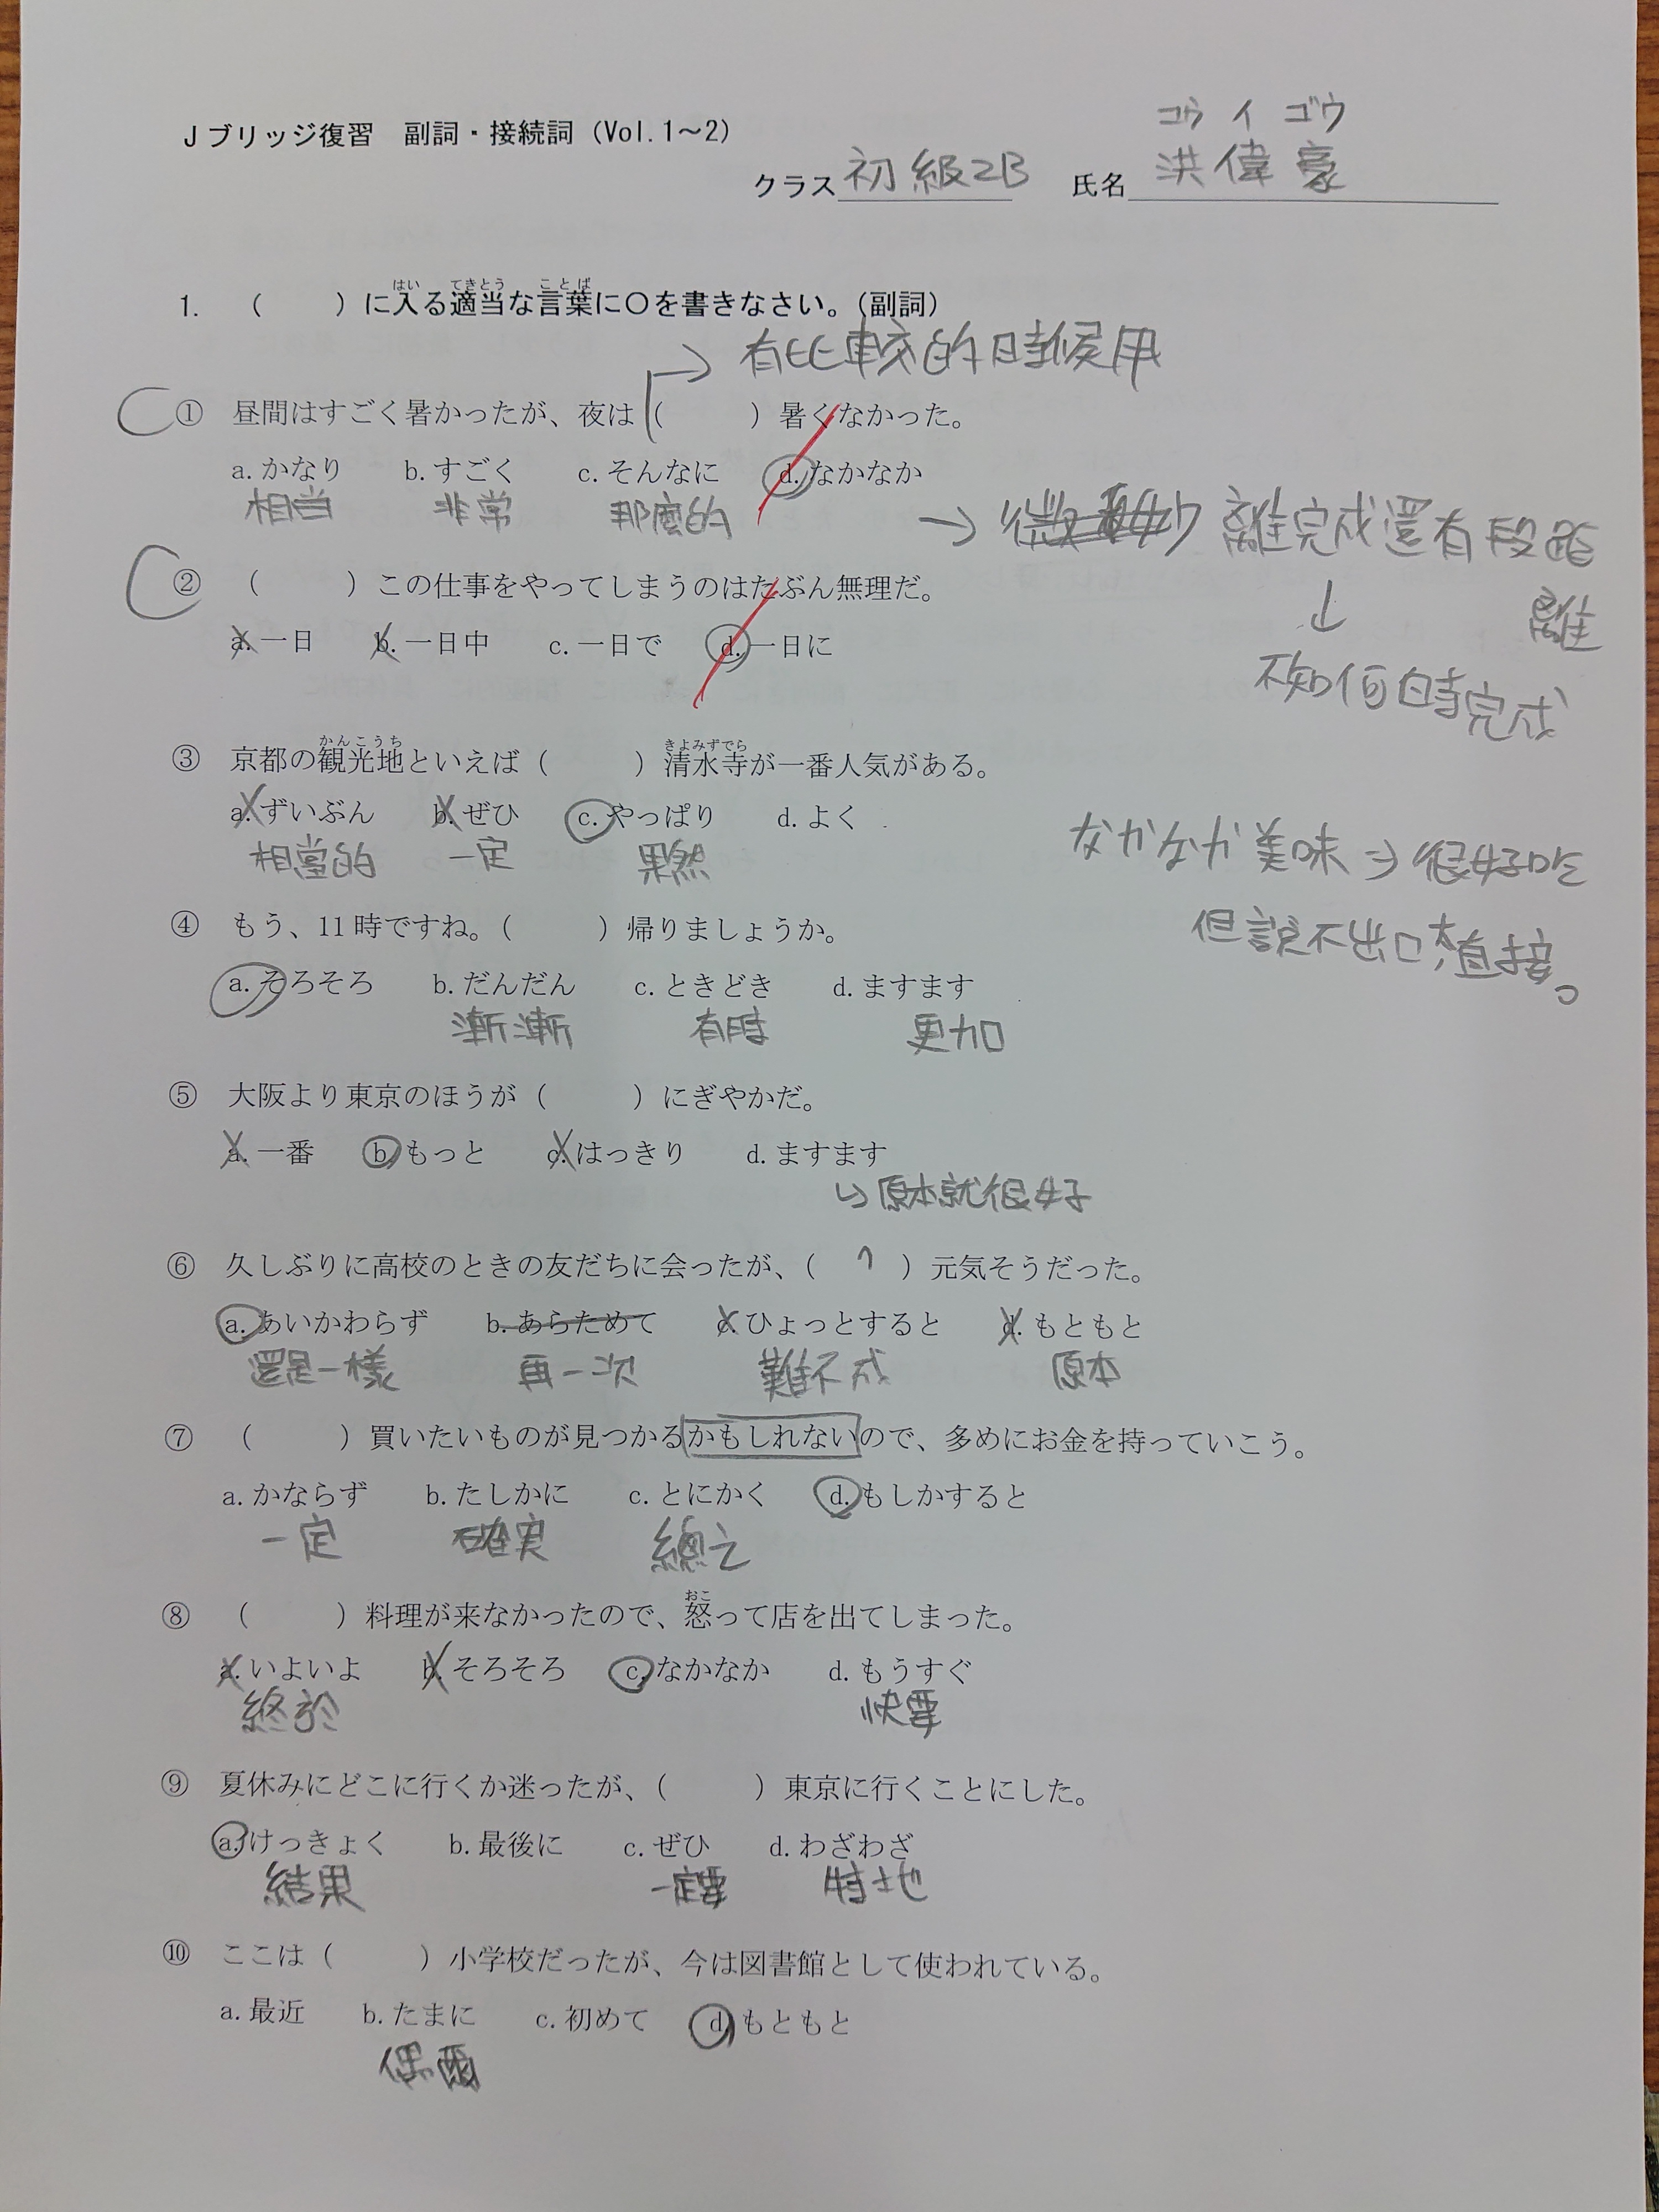 Jブリッジ復習　副詞・接続詞（Vol.1～2）
コウ イ ゴウ
クラス 初級2B　氏名 洪偉豪
はい　てきとう　ことば
1.　（　　　）に入る適当な言葉に〇を書きなさい。（副詞）
→ 有比較的時候用
C ① 昼間はすごく暑かったが、夜は（　　　）暑くなかった。
a. かなり　b. すごく　c. そんなに　d. なかなか
相当　非常　那麼的
→ 離完成還有段距
離
↓
不知何時完成
C ② （　　　）この仕事をやってしまうのはたぶん無理だ。
a. 一日　b. 一日中　c. 一日で　d. 一日に
かんこうち　きよみずでら
③ 京都の観光地といえば（　　　）清水寺が一番人気がある。
a. ずいぶん　b. ぜひ　c. やっぱり　d. よく
相當的　一定　果然
なかなか美味 ⇒ 很好吃
但說不出口,太直接。
④ もう、11時ですね。（　　　）帰りましょうか。
a. そろそろ　b. だんだん　c. ときどき　d. ますます
漸漸　有時　更加
⑤ 大阪より東京のほうが（　　　）にぎやかだ。
a. 一番　b. もっと　c. はっきり　d. ますます
↳ 原本就很好
⑥ 久しぶりに高校のときの友だちに会ったが、（　　　）元気そうだった。
a. あいかわらず　b. あらためて　c. ひょっとすると　d. もともと
還是一樣　再一次　難不成　原本
⑦ （　　　）買いたいものが見つかるかもしれないので、多めにお金を持っていこう。
a. かならず　b. たしかに　c. とにかく　d. もしかすると
一定　確実　總之
おこ
⑧ （　　　）料理が来なかったので、怒って店を出てしまった。
a. いよいよ　b. そろそろ　c. なかなか　d. もうすぐ
終於　快要
⑨ 夏休みにどこに行くか迷ったが、（　　　）東京に行くことにした。
a. けっきょく　b. 最後に　c. ぜひ　d. わざわざ
結果　一定要　特地
⑩ ここは（　　　）小学校だったが、今は図書館として使われている。
a. 最近　b. たまに　c. 初めて　d. もともと
偶爾